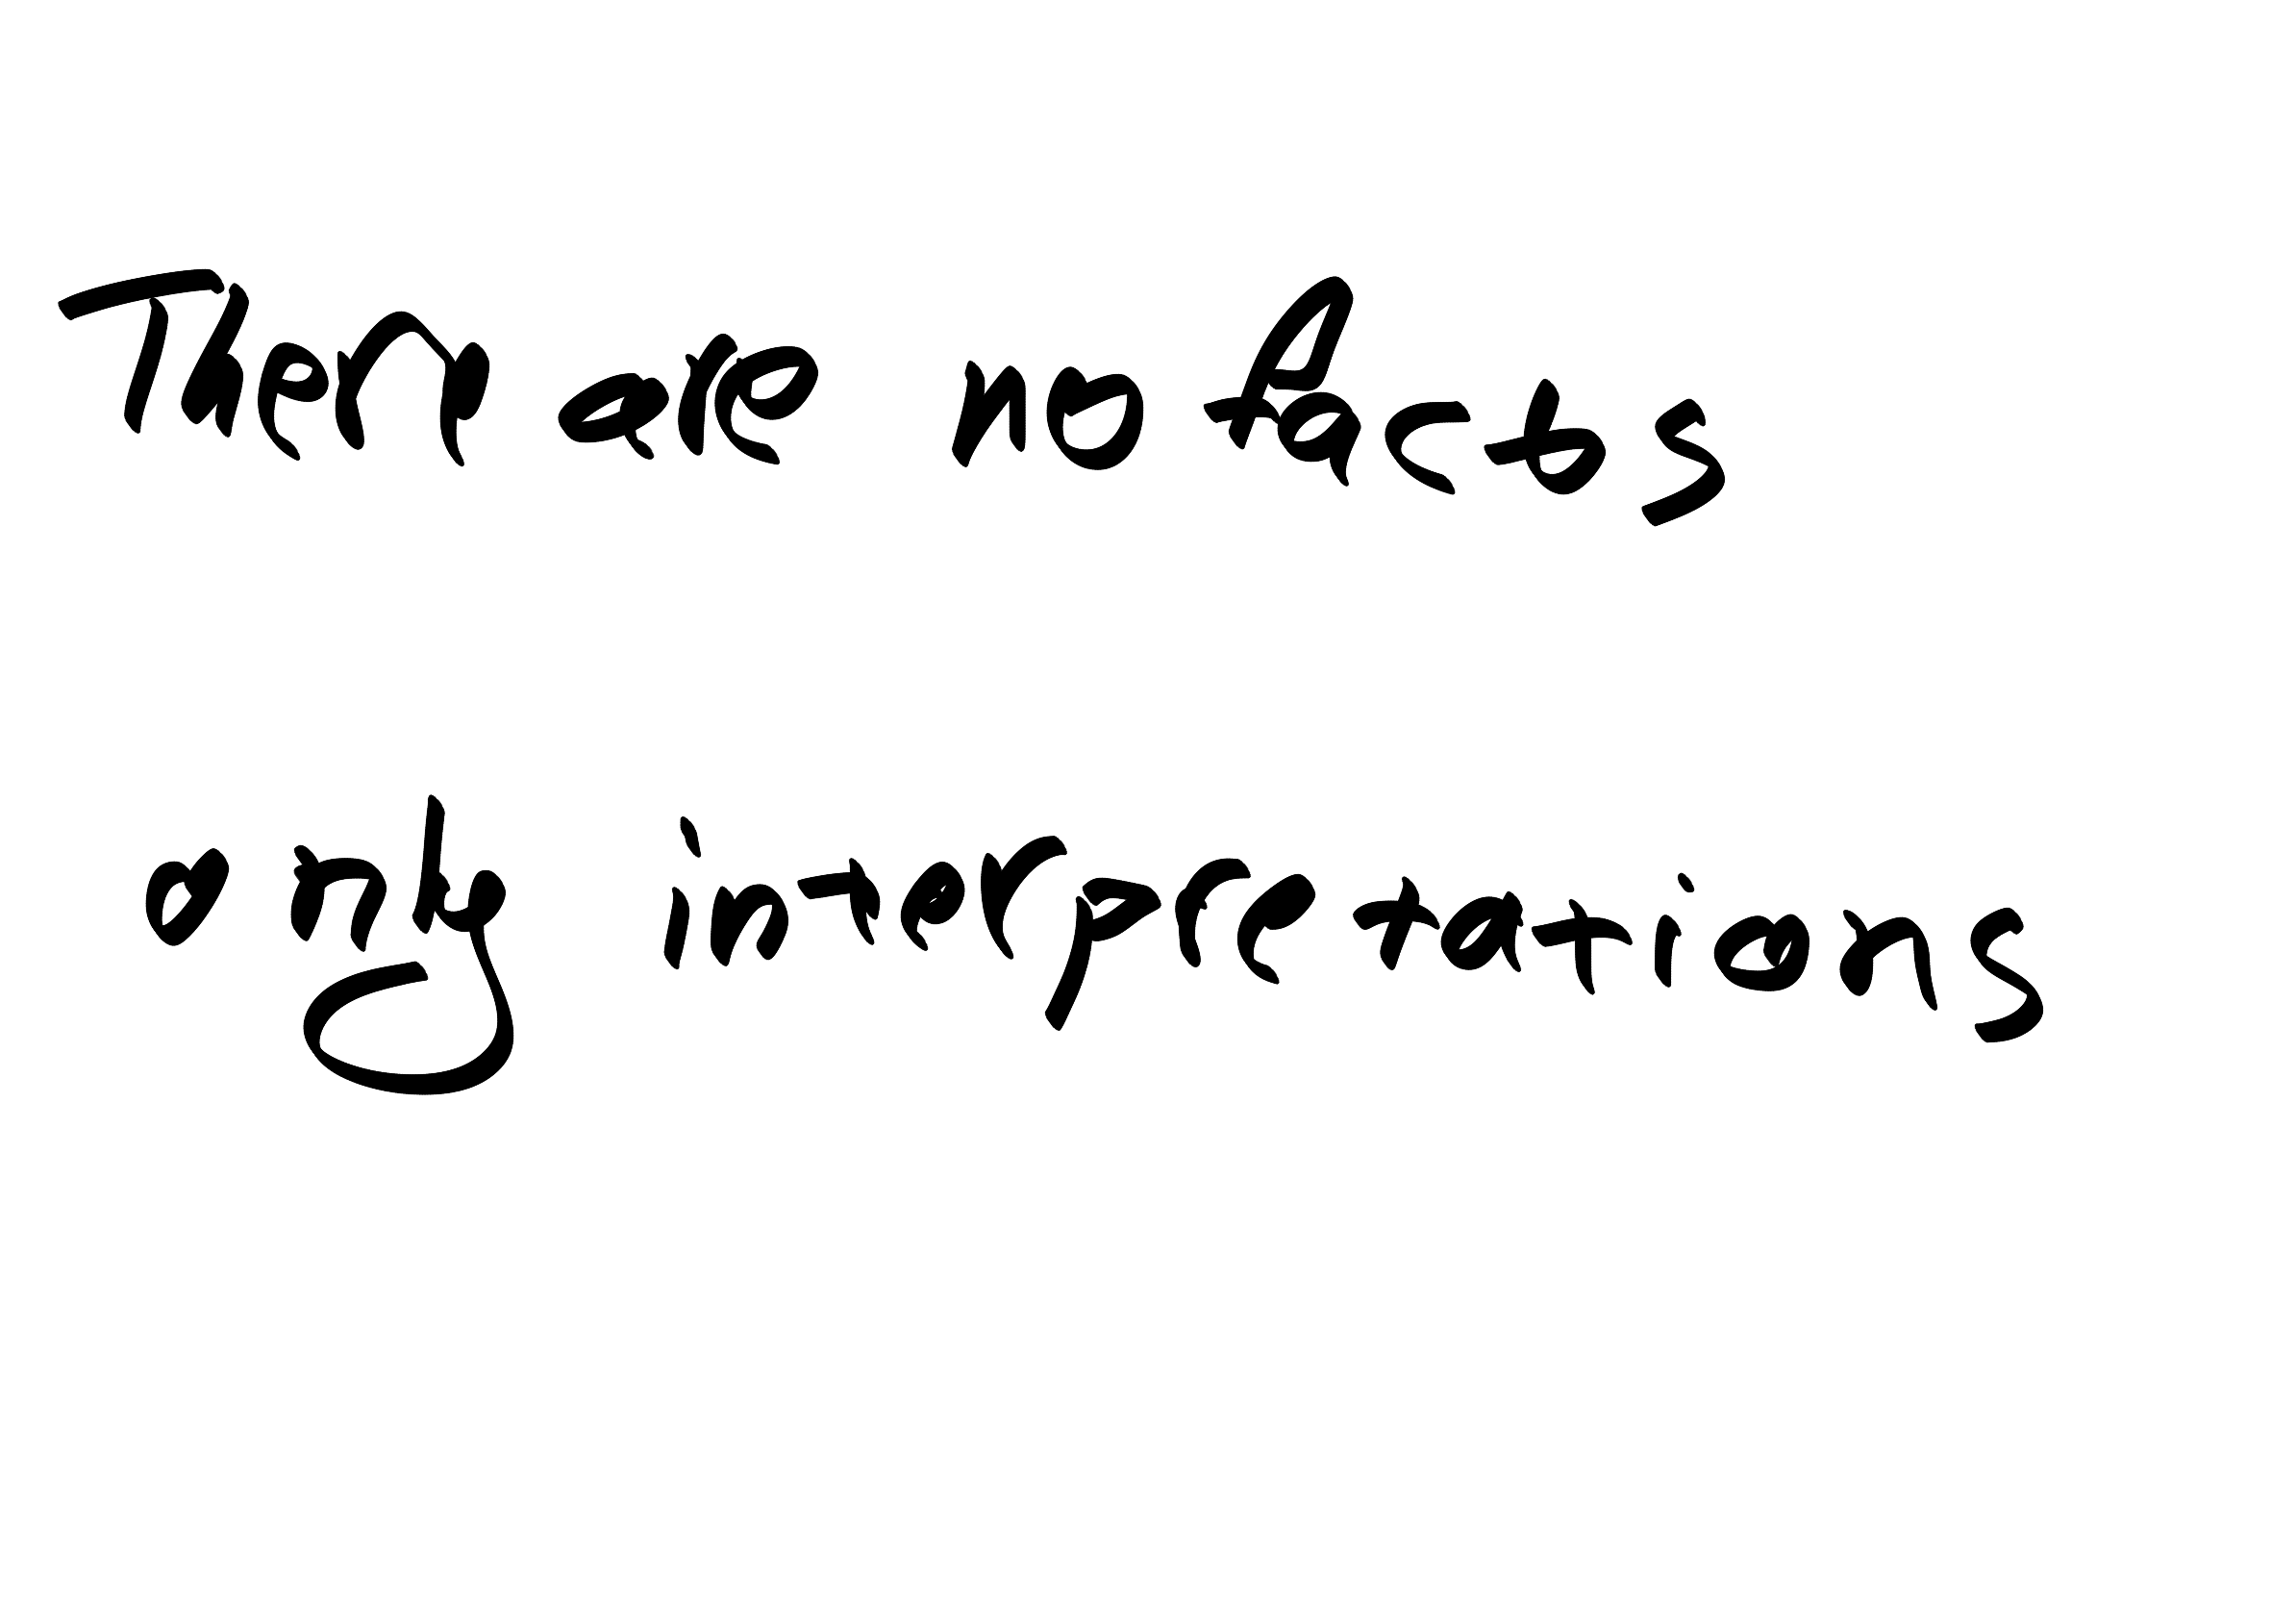 There are no facts
only interpretations